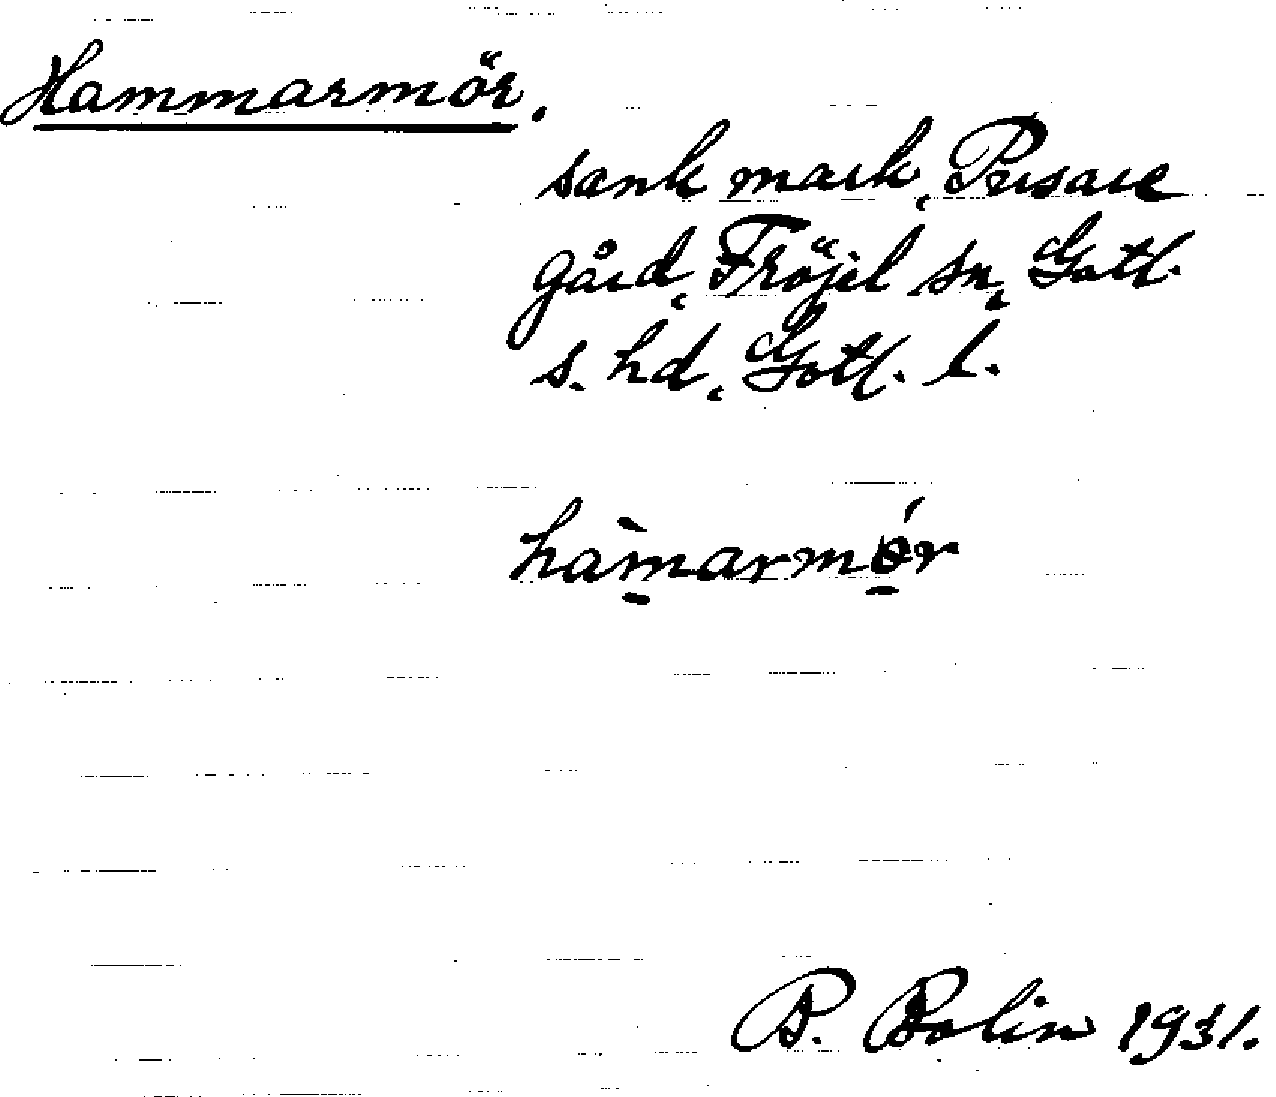 Hammarmör.
sank mark, Prisare
gård, Fröjel sn, Gotl.
s. hd, Gotl. l.
hàmarmǿr
B. Bolin 1931.